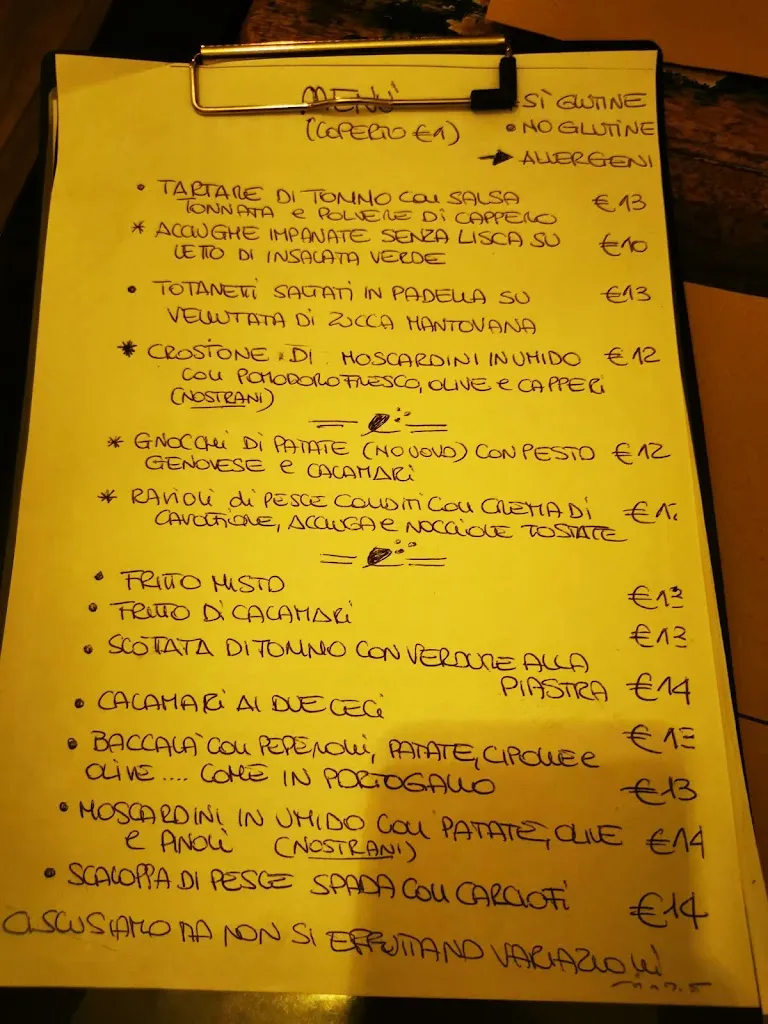 MENÙ
(COPERTO €1)
SÌ GLUTINE
• NO GLUTINE
→ ALLERGENI
• TARTARE DI TONNO CON SALSA €13
TONNATA e POLVERE DI CAPPERO
* ACCIUGHE IMPANATE SENZA LISCA SU €10
LETTO DI INSALATA VERDE
• TOTANETTI SALTATI IN PADELLA SU €13
VELLUTATA DI ZUCCA MANTOVANA
* CROSTONE DI MOSCARDINI IN UMIDO €12
CON POMODORO FRESCO, OLIVE e CAPPERI
(NOSTRANI)
* GNOCCHI DI PATATE (NO UOVO) CON PESTO €12
GENOVESE e CALAMARI
* RAVIOLI di PESCE CONDITI CON CREMA DI
CAVOLFIORE, ACCIUGA e NOCCIOLE TOSTATE
• FRITTO MISTO €13
• FRITTO DI CALAMARI €13
• SCOTTATA DI TONNO CON VERDURE ALLA
PIASTRA €14
• CALAMARI AI DUE CECI
• BACCALÀ CON PEPERONI, PATATE, CIPOLLE e
OLIVE .... COME IN PORTOGALLO €13
• MOSCARDINI IN UMIDO CON PATATE, OLIVE €14
e PINOLI (NOSTRANI)
• SCALOPPA DI PESCE SPADA CON CARCIOFI €14
CI SCUSIAMO MA NON SI EFFETTUANO VARIAZIONI